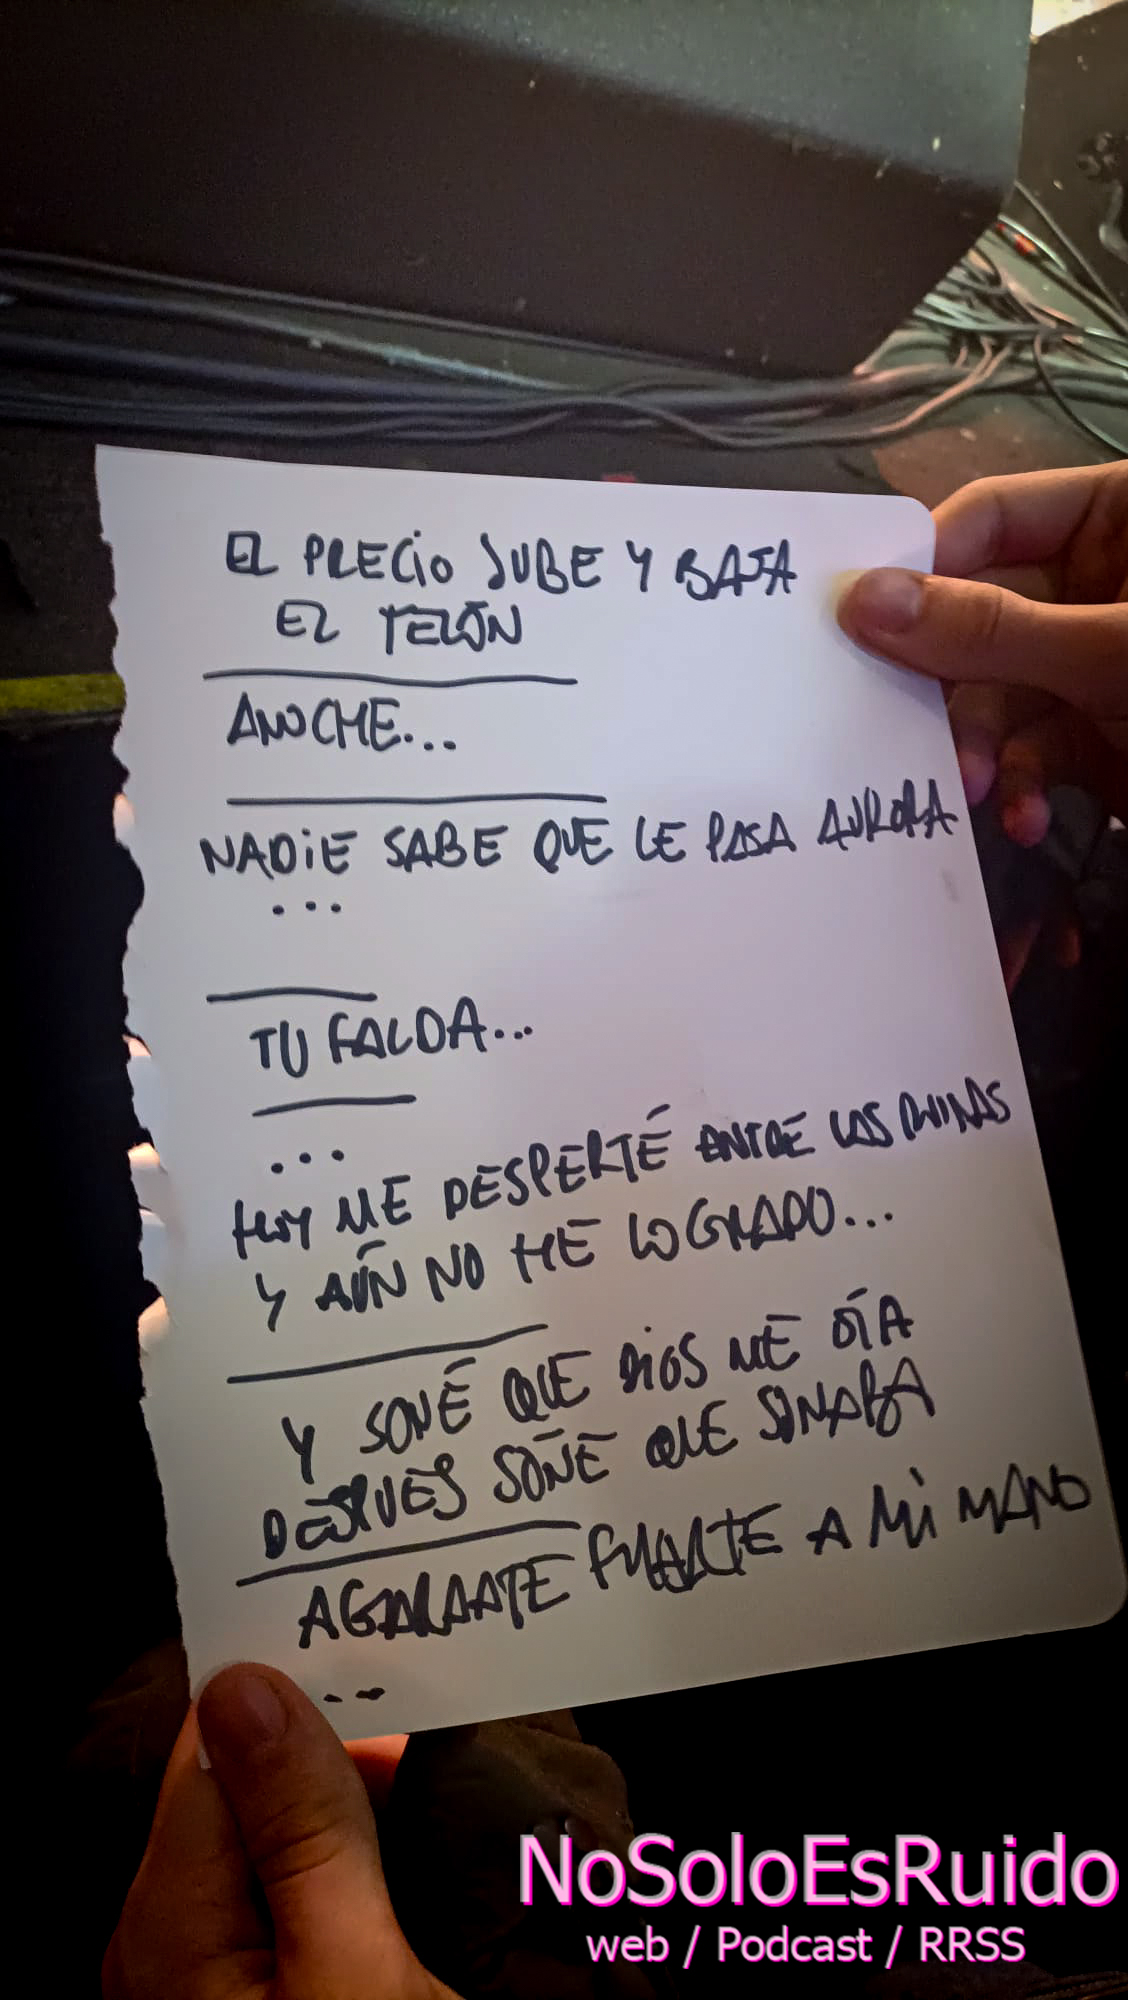 EL PRECIO SUBE Y BAJA
EL TELÓN
ANOCHE...
NADIE SABE QUE LE PASA AURORA
...
TU FALDA...
...
HOY ME DESPERTÉ ENTRE LAS RUINAS
Y AÚN NO HE LOGRADO...
Y SOÑÉ QUE DIOS ME OÍA
DESPUES SOÑÉ QUE SOÑABA
AGARRATE FUERTE A MI MANO
...
NoSoloEsRuido
web / Podcast / RRSS